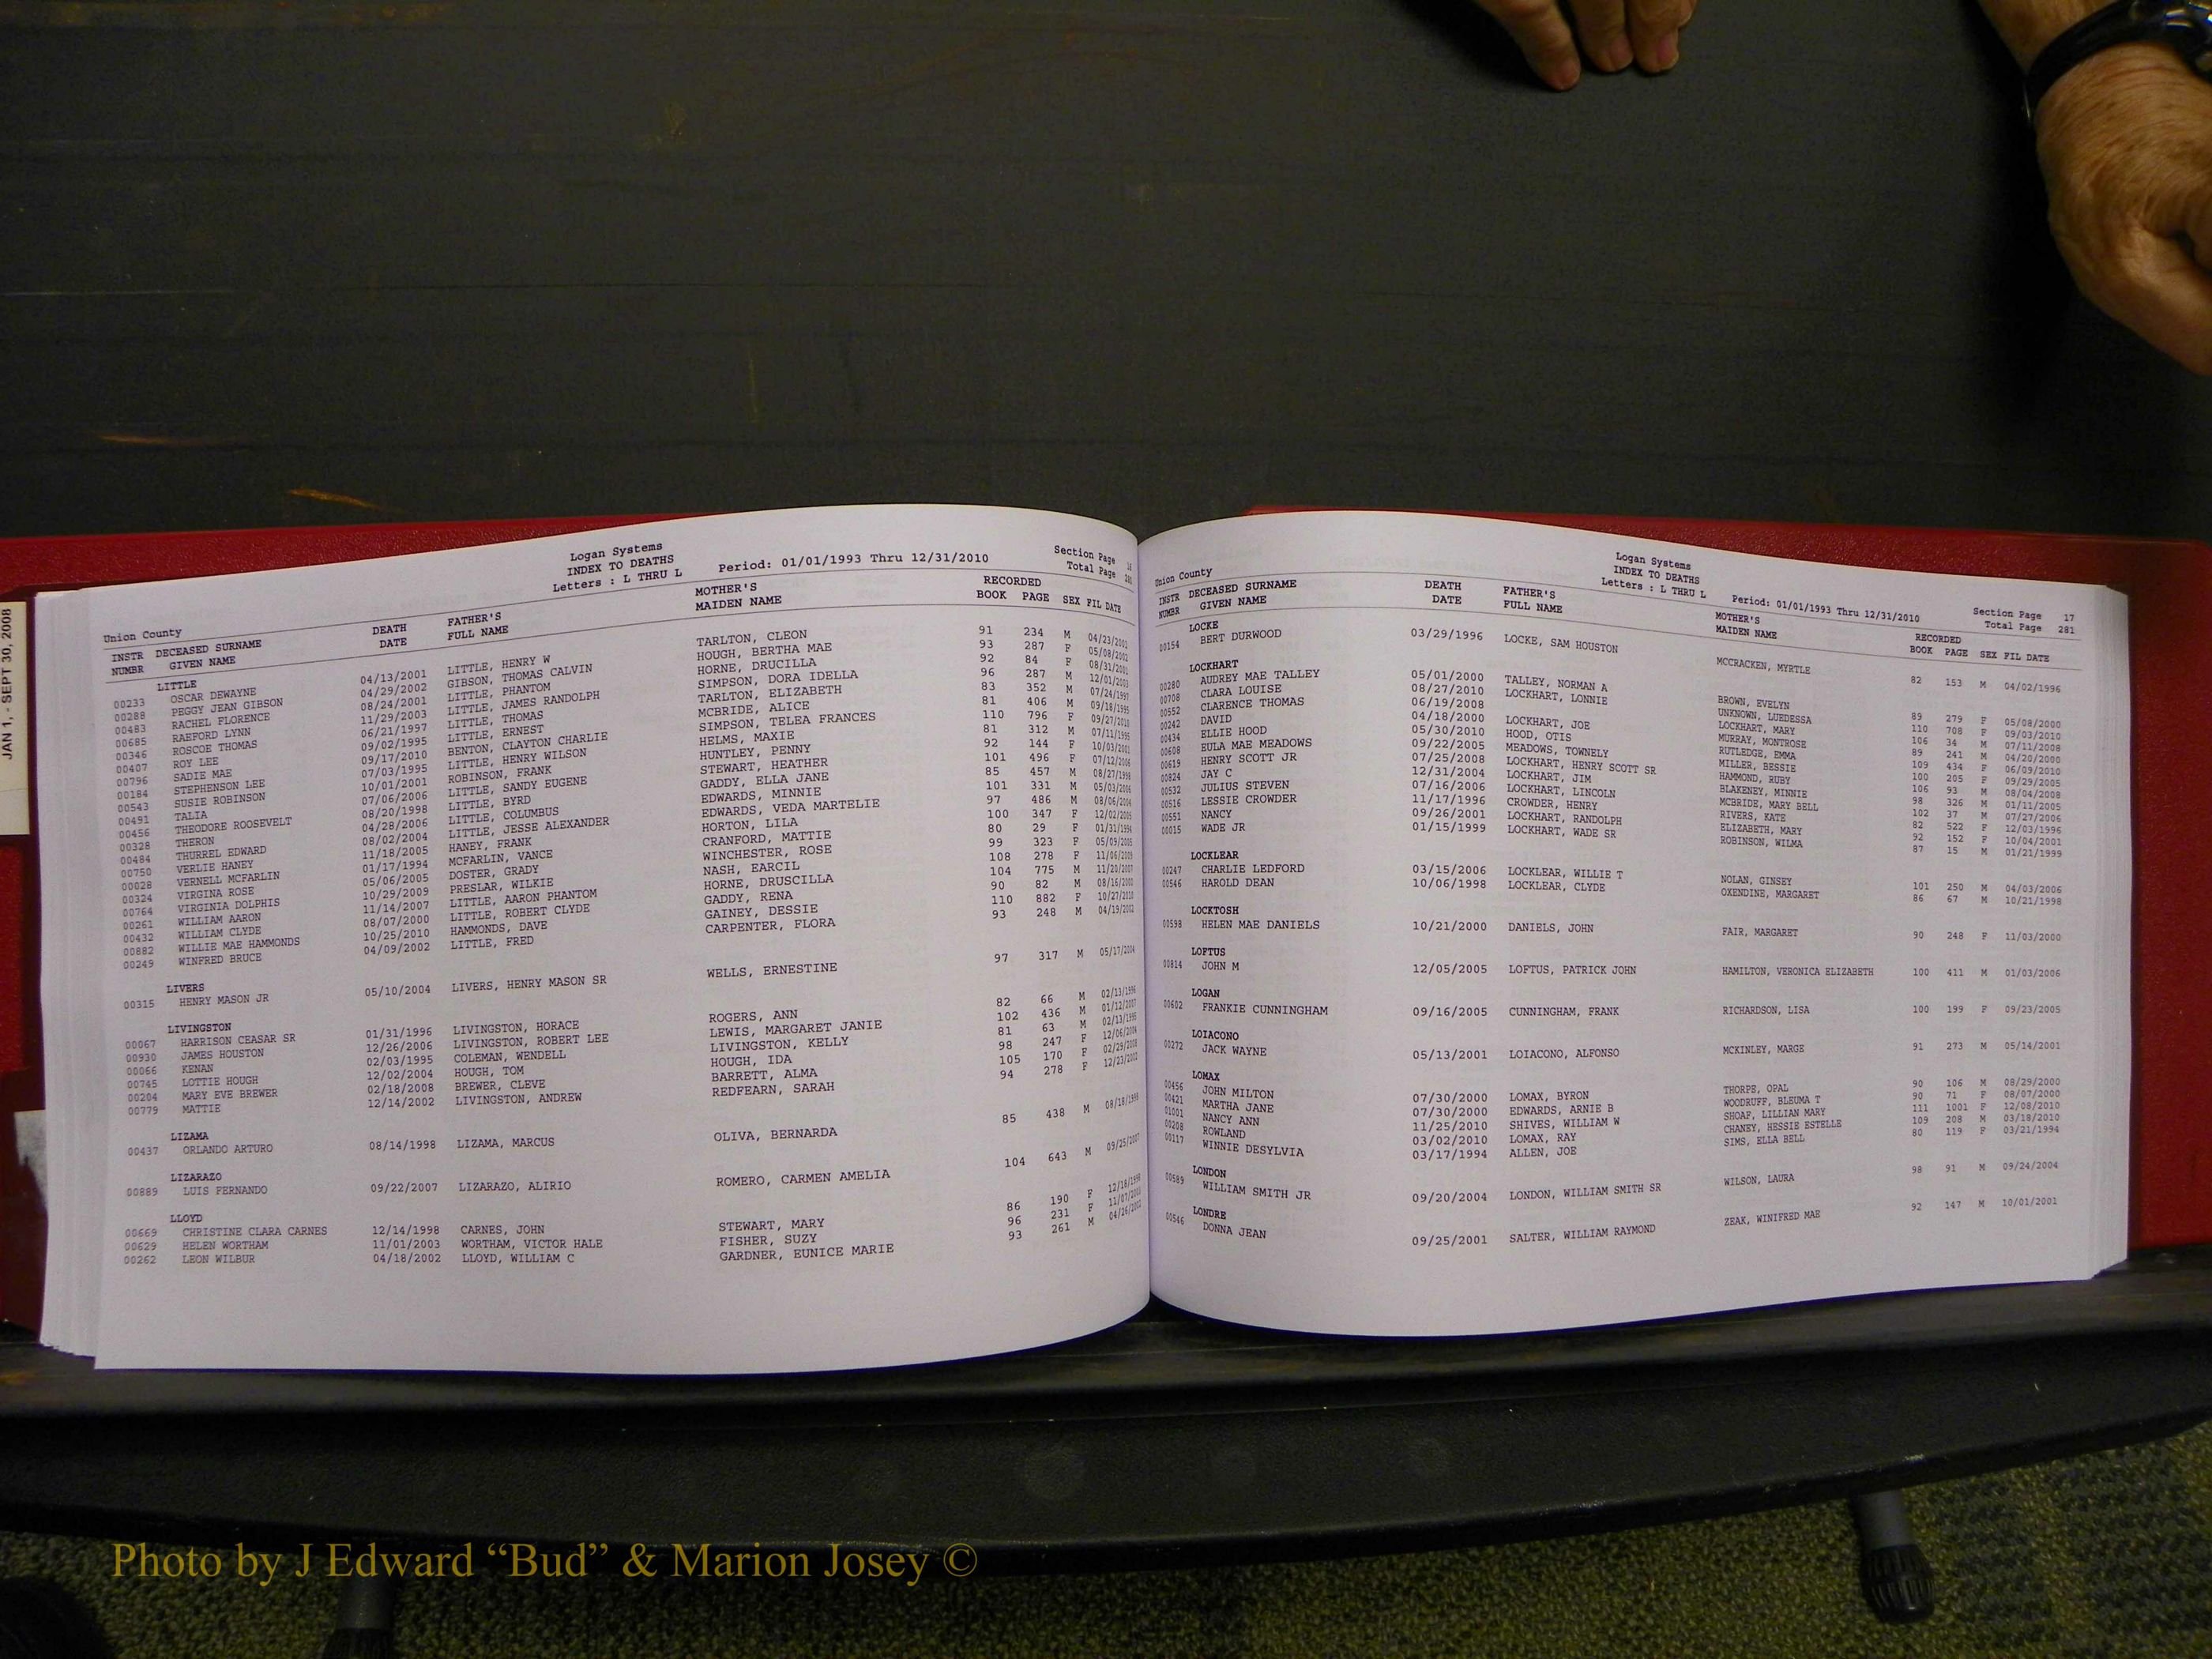 JAN 1, - SEPT 30, 2008
Logan Systems
INDEX TO DEATHS
Letters : L THRU L Period: 01/01/1993 Thru 12/31/2010
Section Page
Total Page
Union County
INSTR DECEASED SURNAME DEATH FATHER'S MOTHER'S RECORDED
NUMBR GIVEN NAME DATE FULL NAME MAIDEN NAME BOOK PAGE SEX FIL DATE
LITTLE
00233 OSCAR DEWAYNE 04/13/2001 LITTLE, HENRY W TARLTON, CLEON 91 234 M 04/23/2001
00288 PEGGY JEAN GIBSON 04/29/2002 GIBSON, THOMAS CALVIN HOUGH, BERTHA MAE 93 287 F 05/08/2002
00483 RACHEL FLORENCE 08/24/2001 LITTLE, PHANTOM HORNE, DRUCILLA 92 84 F 08/31/2001
00685 RAEFORD LYNN 11/29/2003 LITTLE, JAMES RANDOLPH SIMPSON, DORA IDELLA 96 287 M 12/01/2003
00346 ROSCOE THOMAS 06/21/1997 LITTLE, THOMAS TARLTON, ELIZABETH 83 352 M 07/24/1997
00407 ROY LEE 09/02/1995 LITTLE, ERNEST MCBRIDE, ALICE 81 406 M 09/18/1995
00796 SADIE MAE 09/17/2010 BENTON, CLAYTON CHARLIE SIMPSON, TELEA FRANCES 110 796 F 09/27/2010
00184 STEPHENSON LEE 07/03/1995 LITTLE, HENRY WILSON HELMS, MAXIE 81 312 M 07/11/1995
00543 SUSIE ROBINSON 10/01/2001 ROBINSON, FRANK HUNTLEY, PENNY 92 144 F 10/03/2001
00491 TALIA 07/06/2006 LITTLE, SANDY EUGENE STEWART, HEATHER 101 496 F 07/12/2006
00456 THEODORE ROOSEVELT 08/20/1998 LITTLE, BYRD GADDY, ELLA JANE 85 457 M 08/27/1998
00328 THERON 04/28/2006 LITTLE, COLUMBUS EDWARDS, MINNIE 101 331 M 05/03/2006
00484 THURREL EDWARD 08/02/2004 LITTLE, JESSE ALEXANDER EDWARDS, VEDA MARTELIE 97 486 M 08/06/2004
00750 VERLIE HANEY 11/18/2005 HANEY, FRANK HORTON, LILA 100 347 F 12/02/2005
00028 VERNELL MCFARLIN 01/17/1994 MCFARLIN, VANCE CRANFORD, MATTIE 80 29 F 01/31/1994
00324 VIRGINA ROSE 05/06/2005 DOSTER, GRADY WINCHESTER, ROSE 99 323 F 05/09/2005
00764 VIRGINIA DOLPHIS 10/29/2009 PRESLAR, WILKIE NASH, EARCIL 108 278 F 11/06/2009
00261 WILLIAM AARON 11/14/2007 LITTLE, AARON PHANTOM HORNE, DRUSCILLA 104 775 M 11/20/2007
00432 WILLIAM CLYDE 08/07/2000 LITTLE, ROBERT CLYDE GADDY, RENA 90 82 M 08/16/2000
00882 WILLIE MAE HAMMONDS 10/25/2010 HAMMONDS, DAVE GAINEY, DESSIE 110 882 F 10/27/2010
00249 WINFRED BRUCE 04/09/2002 LITTLE, FRED CARPENTER, FLORA 93 248 M 04/19/2002
LIVERS
00315 HENRY MASON JR 05/10/2004 LIVERS, HENRY MASON SR WELLS, ERNESTINE 97 317 M 05/17/2004
LIVINGSTON
00067 HARRISON CEASAR SR 01/31/1996 LIVINGSTON, HORACE ROGERS, ANN 82 66 M 02/13/1996
00930 JAMES HOUSTON 12/26/2006 LIVINGSTON, ROBERT LEE LEWIS, MARGARET JANIE 102 436 M 01/12/2007
00066 KENAN 02/03/1995 COLEMAN, WENDELL LIVINGSTON, KELLY 81 63 M 02/13/1995
00745 LOTTIE HOUGH 12/02/2004 HOUGH, TOM HOUGH, IDA 98 247 F 12/06/2004
00204 MARY EVE BREWER 02/18/2008 BREWER, CLEVE BARRETT, ALMA 105 170 F 02/29/2008
00779 MATTIE 12/14/2002 LIVINGSTON, ANDREW REDFEARN, SARAH 94 278 F 12/23/2002
LIZAMA
00437 ORLANDO ARTURO 08/14/1998 LIZAMA, MARCUS OLIVA, BERNARDA 85 438 M 08/18/1998
LIZARAZO
00889 LUIS FERNANDO 09/22/2007 LIZARAZO, ALIRIO ROMERO, CARMEN AMELIA 104 643 M 09/25/2007
LLOYD
00669 CHRISTINE CLARA CARNES 12/14/1998 CARNES, JOHN STEWART, MARY 86 190 F 12/18/1998
00629 HELEN WORTHAM 11/01/2003 WORTHAM, VICTOR HALE FISHER, SUZY 96 231 F 11/07/2003
00262 LEON WILBUR 04/18/2002 LLOYD, WILLIAM C GARDNER, EUNICE MARIE 93 261 M 04/26/2002
Logan Systems
INDEX TO DEATHS
Letters : L THRU L Period: 01/01/1993 Thru 12/31/2010
Section Page 17
Total Page 281
Union County
INSTR DECEASED SURNAME DEATH FATHER'S MOTHER'S RECORDED
NUMBR GIVEN NAME DATE FULL NAME MAIDEN NAME BOOK PAGE SEX FIL DATE
LOCKE
00154 BERT DURWOOD 03/29/1996 LOCKE, SAM HOUSTON MCCRACKEN, MYRTLE 82 153 M 04/02/1996
LOCKHART
00280 AUDREY MAE TALLEY 05/01/2000 TALLEY, NORMAN A BROWN, EVELYN 89 279 F 05/08/2000
00708 CLARA LOUISE 08/27/2010 LOCKHART, LONNIE UNKNOWN, LUEDESSA 110 708 F 09/03/2010
00552 CLARENCE THOMAS 06/19/2008 LOCKHART, MARY 106 34 M 07/11/2008
00242 DAVID 04/18/2000 LOCKHART, JOE MURRAY, MONTROSE 89 241 M 04/20/2000
00434 ELLIE HOOD 05/30/2010 HOOD, OTIS RUTLEDGE, EMMA 109 434 F 06/09/2010
00608 EULA MAE MEADOWS 09/22/2005 MEADOWS, TOWNELY MILLER, BESSIE 100 205 F 09/29/2005
00619 HENRY SCOTT JR 07/25/2008 LOCKHART, HENRY SCOTT SR HAMMOND, RUBY 106 93 M 08/04/2008
00824 JAY C 12/31/2004 LOCKHART, JIM BLAKENEY, MINNIE 98 326 M 01/11/2005
00532 JULIUS STEVEN 07/16/2006 LOCKHART, LINCOLN MCBRIDE, MARY BELL 102 37 M 07/27/2006
00516 LESSIE CROWDER 11/17/1996 CROWDER, HENRY RIVERS, KATE 82 522 F 12/03/1996
00551 NANCY 09/26/2001 LOCKHART, RANDOLPH ELIZABETH, MARY 92 152 F 10/04/2001
00015 WADE JR 01/15/1999 LOCKHART, WADE SR ROBINSON, WILMA 87 15 M 01/21/1999
LOCKLEAR
00247 CHARLIE LEDFORD 03/15/2006 LOCKLEAR, WILLIE T NOLAN, GINSEY 101 250 M 04/03/2006
00546 HAROLD DEAN 10/06/1998 LOCKLEAR, CLYDE OXENDINE, MARGARET 86 67 M 10/21/1998
LOCKTOSH
00598 HELEN MAE DANIELS 10/21/2000 DANIELS, JOHN FAIR, MARGARET 90 248 F 11/03/2000
LOFTUS
00814 JOHN M 12/05/2005 LOFTUS, PATRICK JOHN HAMILTON, VERONICA ELIZABETH 100 411 M 01/03/2006
LOGAN
00602 FRANKIE CUNNINGHAM 09/16/2005 CUNNINGHAM, FRANK RICHARDSON, LISA 100 199 F 09/23/2005
LOIACONO
00272 JACK WAYNE 05/13/2001 LOIACONO, ALFONSO MCKINLEY, MARGE 91 273 M 05/14/2001
LOMAX
00456 JOHN MILTON 07/30/2000 LOMAX, BYRON THORPE, OPAL 90 106 M 08/29/2000
00421 MARTHA JANE 07/30/2000 EDWARDS, ARNIE B WOODRUFF, BLEUMA T 90 71 F 08/07/2000
01001 NANCY ANN 11/25/2010 SHIVES, WILLIAM W SHOAF, LILLIAN MARY 111 1001 F 12/08/2010
00208 ROWLAND 03/02/2010 LOMAX, RAY CHANEY, HESSIE ESTELLE 109 208 M 03/18/2010
00117 WINNIE DESYLVIA 03/17/1994 ALLEN, JOE SIMS, ELLA BELL 80 119 F 03/21/1994
LONDON
00589 WILLIAM SMITH JR 09/20/2004 LONDON, WILLIAM SMITH SR WILSON, LAURA 98 91 M 09/24/2004
LONDRE
00546 DONNA JEAN 09/25/2001 SALTER, WILLIAM RAYMOND ZEAK, WINIFRED MAE 92 147 M 10/01/2001
Photo by J Edward “Bud” & Marion Josey ©